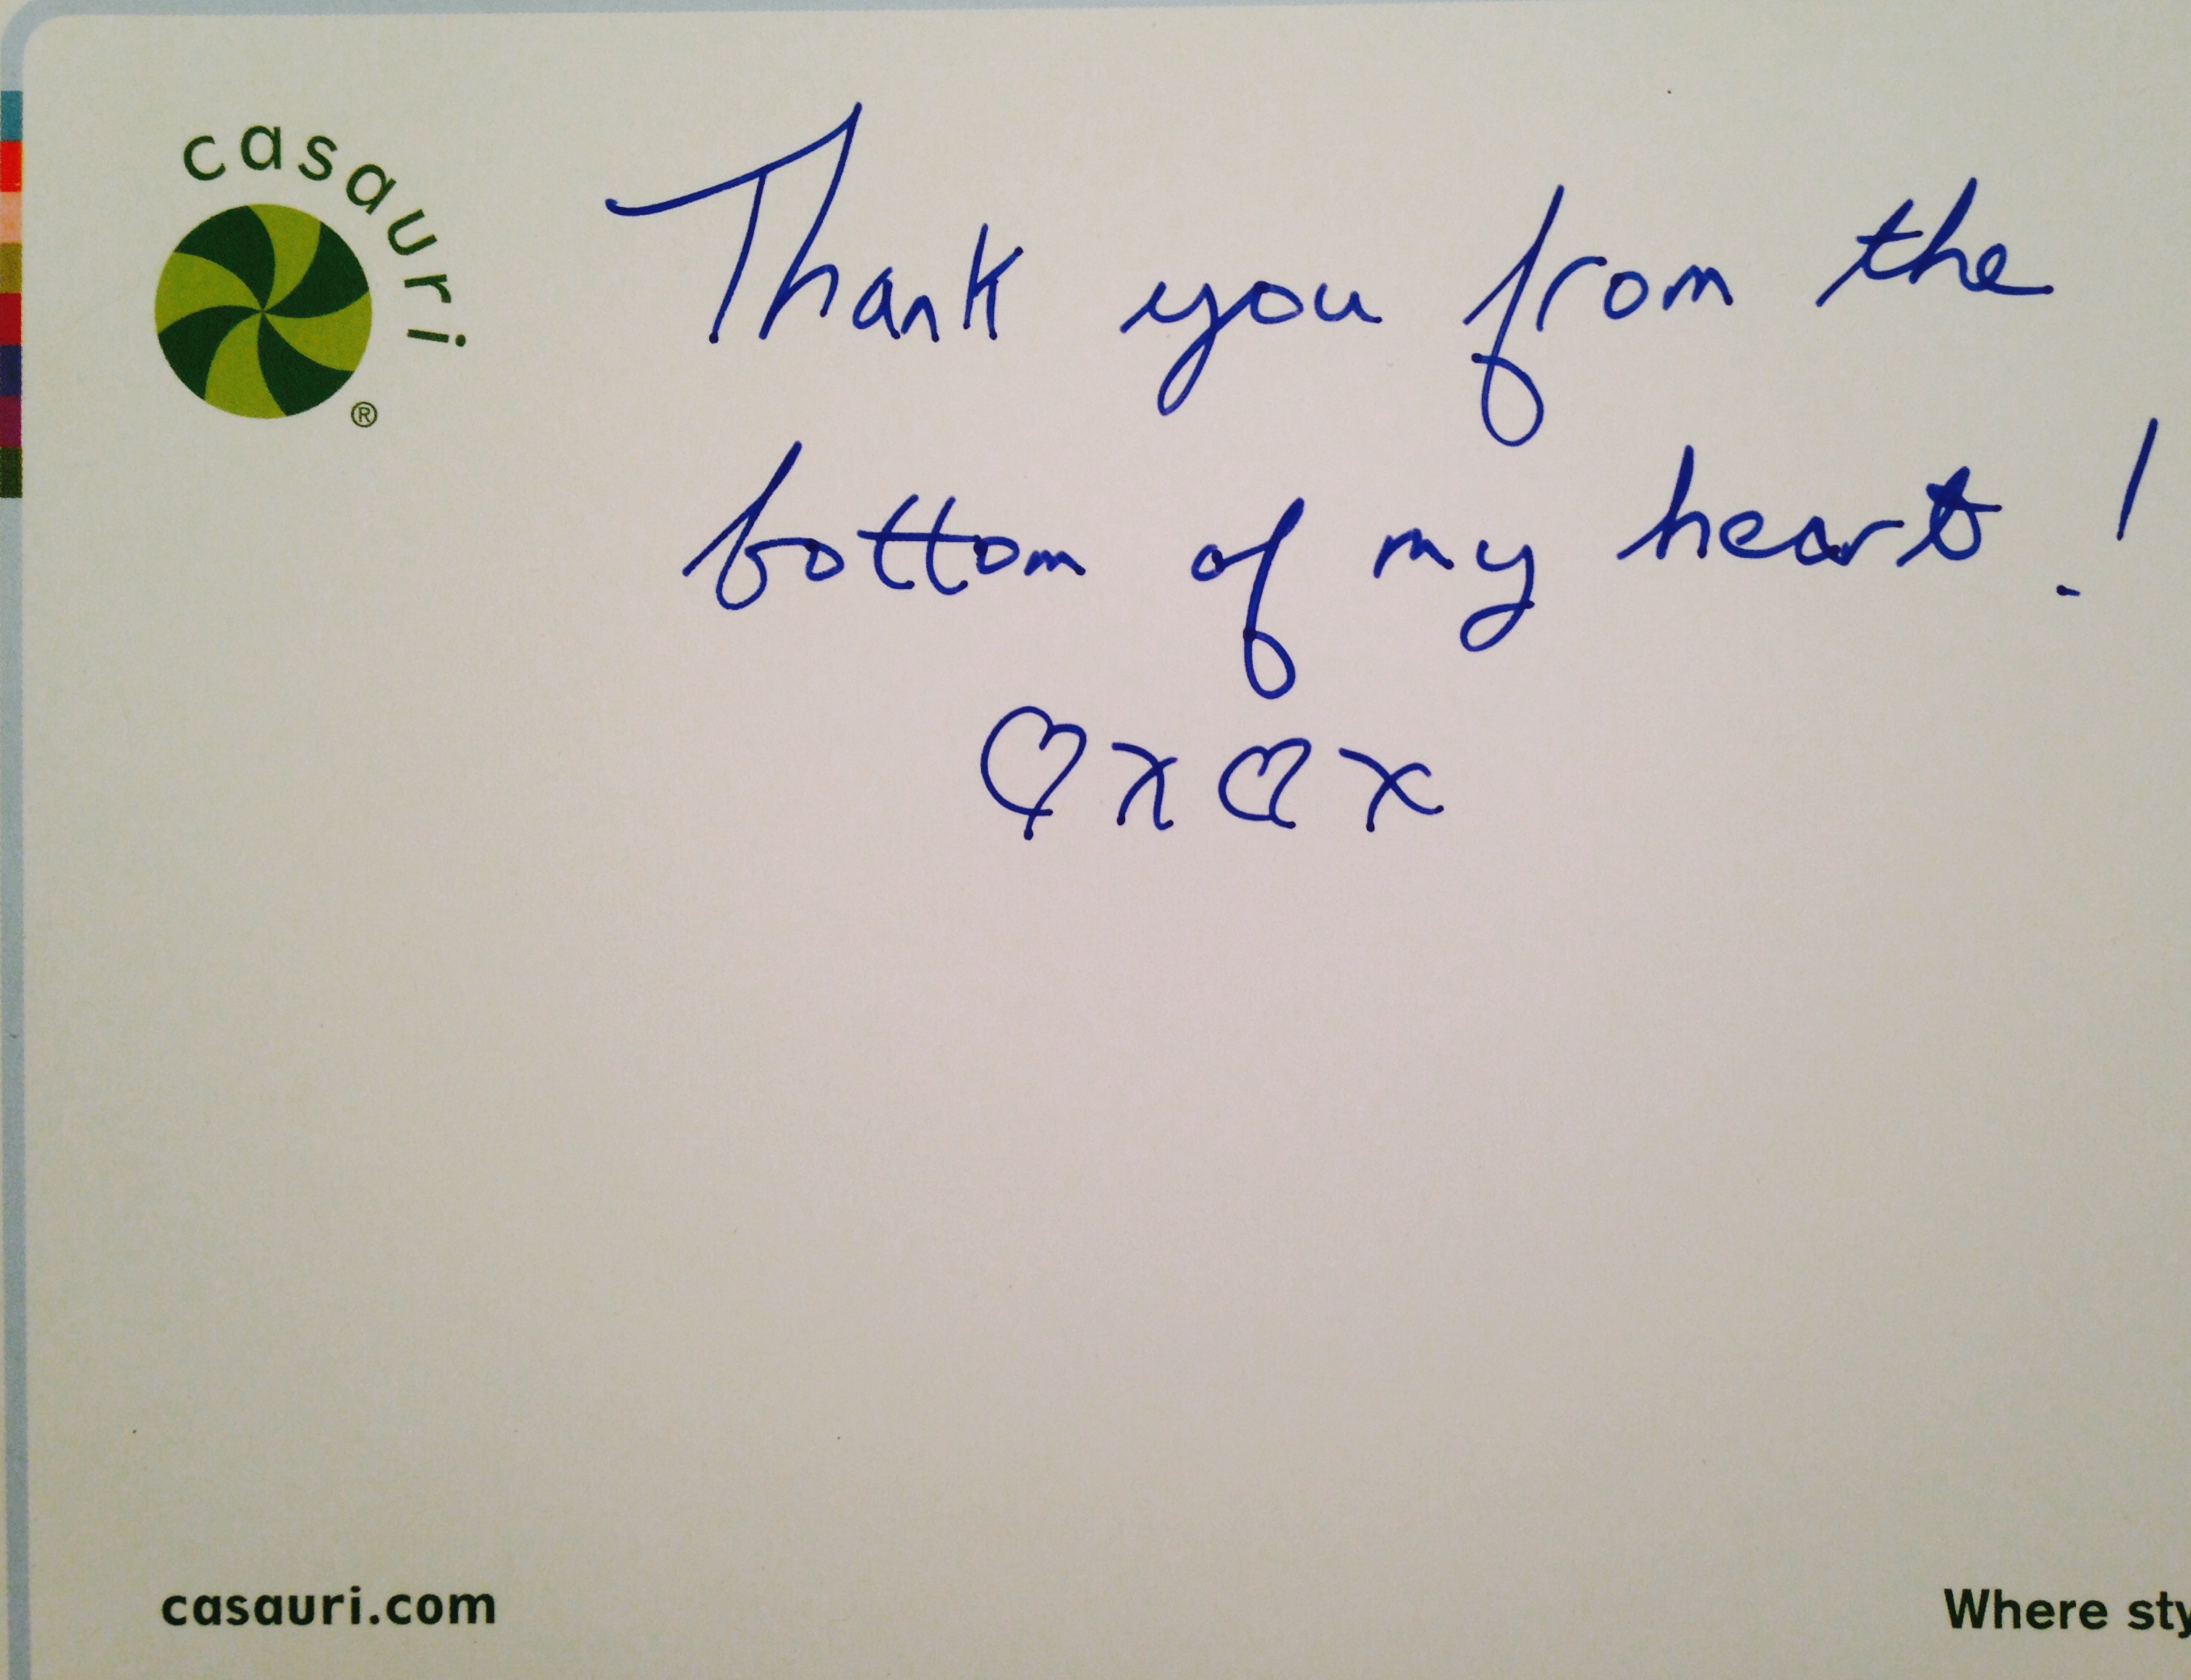 casauri
®
Thank you from the
bottom of my heart!
♡x♡x
casauri.com
Where sty